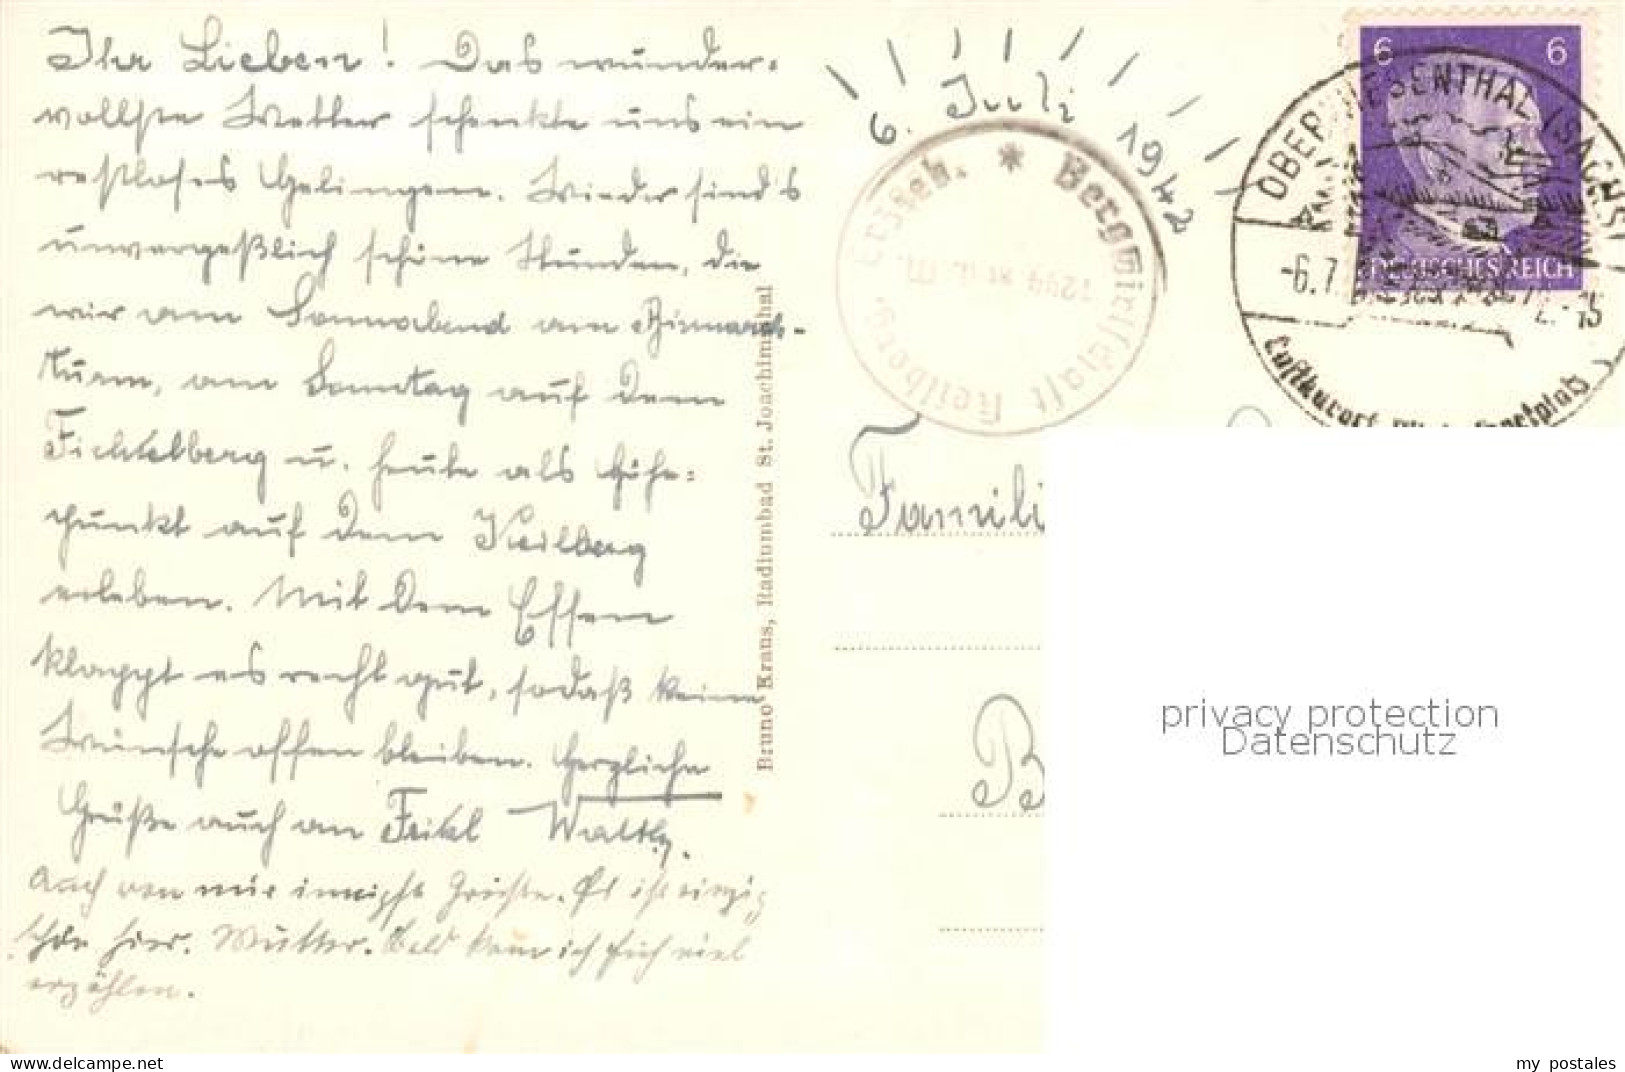 Ihr Lieben! Das wunder-
vollste Wetter schenkte uns ein
restloses Gelingen. Wieder sind's
unvergeßlich schöne Stunden, die
wir am Sonnabend am Bismarck-
turm, am Sonntag auf dem
Fichtelberg u. heute als Höhe-
punkt auf dem Keilberg
erleben. Mit dem Essen
klappt es recht gut, sodaß keine
Wünsche offen bleiben. Herzliche
Grüße auch an
Auch von mir innigste Grüße. Es ist einzig
schön hier. Mutter. Bald kann ich Euch viel
erzählen.
Bruno Kraus, Radiumbad St. Joachimsthal
6. Juli 1942
* Bergwirtschaft Keilberg, Erzgeb.
1244 m ü. M.
6 6
DEUTSCHES REICH
OBERWIESENTHAL (SACHS)
-6.7. 42.-15
Luftkurort
Famili
B
privacy protection
Datenschutz
delcampe.net
my_postales